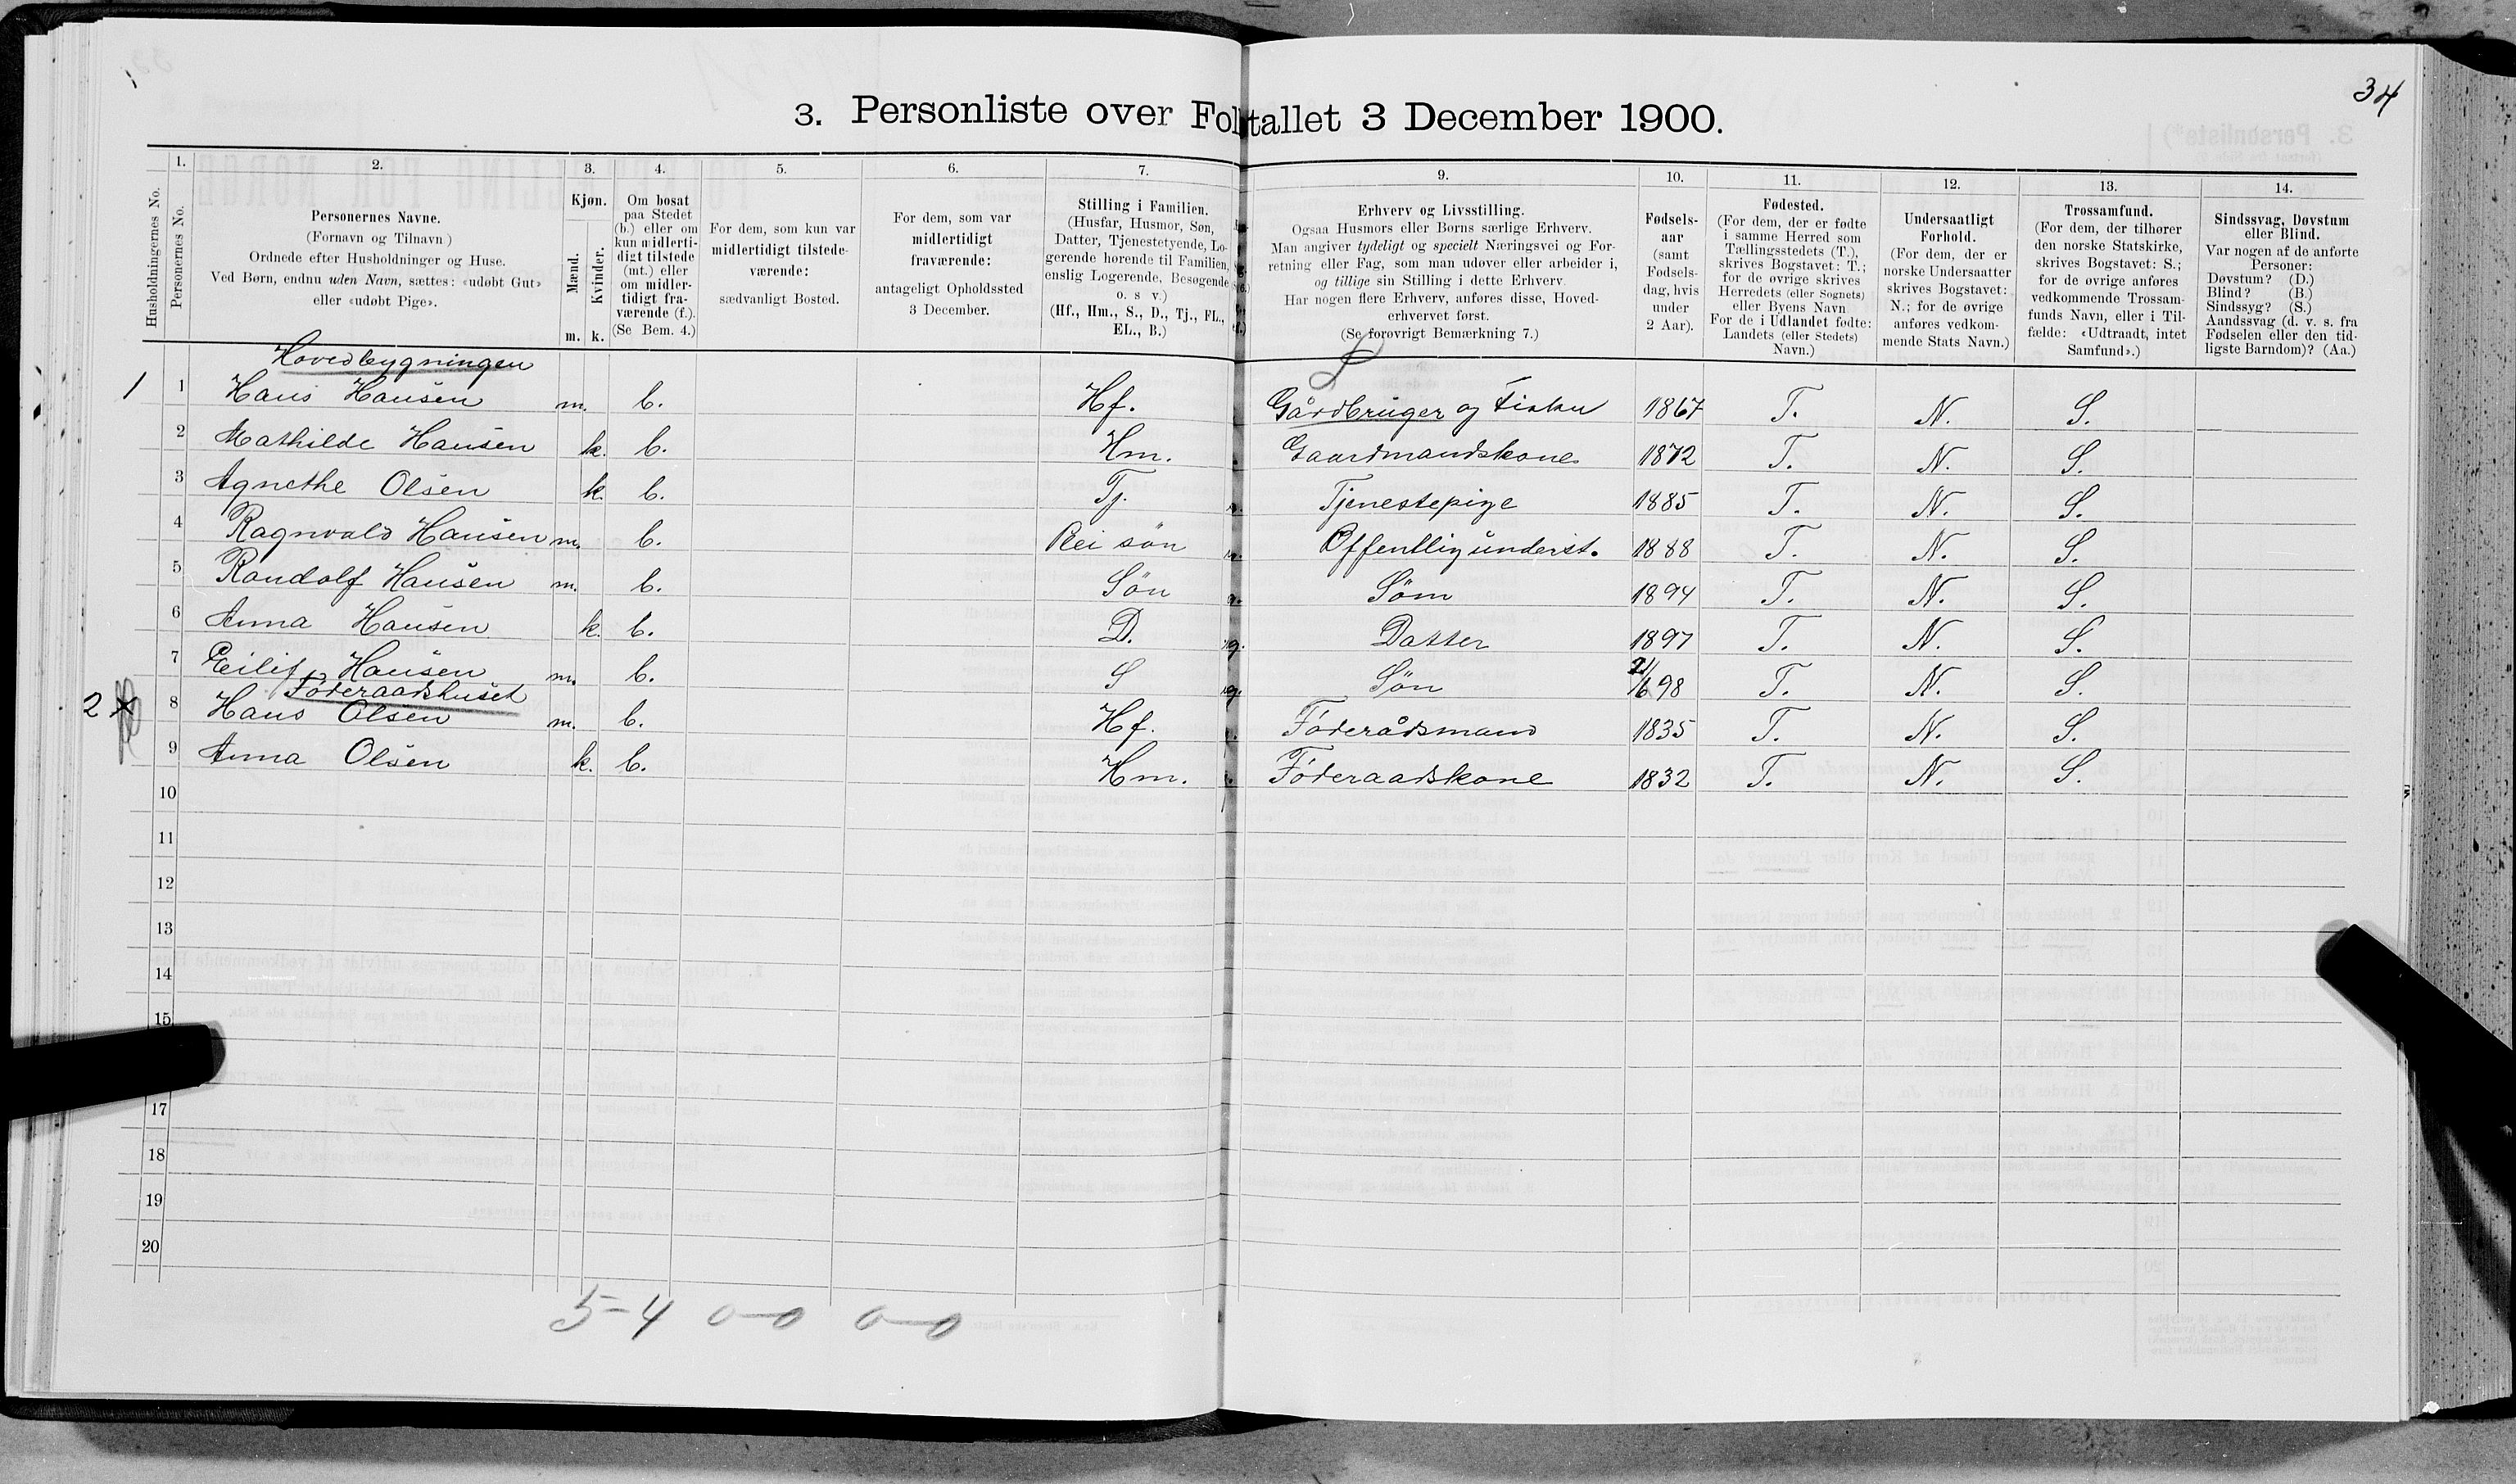 34
3. Personliste over Folketallet 3 December 1900.
Husholdningernes No.
1.
Personernes No.
2.
Personernes Navne.
(Fornavn og Tilnavn)
Ordnede efter Husholdninger og Huse.
Ved Børn, endnu uden Navn, sættes: «udøbt Gut»
eller «udøbt Pige».
3.
Kjøn.
Mænd.
Kvinder.
m. k.
4.
Om bosat
paa Stedet
(b.) eller om
kun midlerti-
digt tilstede
(mt.) eller
om midler-
tidigt fra-
værende (f.).
(Se Bem. 4.)
5.
For dem, som kun var
midlertidigt tilstede-
værende:
sædvanligt Bosted.
6.
For dem, som var
midlertidigt
fraværende:
antageligt Opholdssted
3 December.
7.
Stilling i Familien.
(Husfar, Husmor, Søn,
Datter, Tjenestetyende, Lo-
gerende hørende til Familien,
enslig Logerende, Besøgende
o. s v.)
(Hf., Hm., S., D., Tj., FL.,
EL., B.)
9.
Erhverv og Livsstilling.
Ogsaa Husmors eller Børns særlige Erhverv.
Man angiver tydeligt og specielt Næringsvei og For-
retning eller Fag, som man udøver eller arbeider i,
og tillige sin Stilling i dette Erhverv
Har nogen flere Erhverv, anføres disse, Hoved-
erhvervet først.
(Se forøvrigt Bemærkning 7.)
10.
Fødsels-
aar
(samt
Fødsels-
dag, hvis
under
2 Aar).
11.
Fødested.
(For dem, der er fødte
i samme Herred som
Tællingsstedets (T.),
skrives Bogstavet: T.;
for de øvrige skrives
Herredets (eller Sognets)
eller Byens Navn
For de i Udlandet fødte:
Landets (eller Stedets)
Navn.)
12.
Undersaatligt
Forhold.
(For dem, der er
norske Undersaatter
skrives Bogstavet:
N.; for de øvrige
anføres vedkom-
mende Stats Navn.)
13.
Trossamfund.
(For dem, der tilhører
den norske Statskirke,
skrives Bogstavet: S.;
for de øvrige anføres
vedkommende Trossam-
funds Navn, eller i Til-
fælde: «Udtraadt, intet
Samfund».)
14.
Sindssvag, Døvstum
eller Blind.
Var nogen af de anførte
Personer:
Døvstum? (D.)
Blind? (B.)
Sindssyg? (S.)
Aandssvag (d. v. s. fra
Fødselen eller den tid-
ligste Barndom)? (Aa.)
Hovedbygningen
1 1 Hans Hansen m. b. Hf. Gårdbruger og Fisker 1867 T. N. S.
2 Mathilde Hansen k. b. Hm. Gaardmandskone 1872 T. N. S.
3 Agnethe Olsen k. b. Tj. Tjenestepige 1885 T. N. S.
4 Ragnvald Hansen m. b. Plei søn Offentlig underst. 1888 T. N. S.
5 Randolf Hansen m. b. Søn Søm 1894 T. N. S.
6 Anna Hansen k. b. D. Datter 1897 T. N. S.
7 Eilif Hansen m. b. S Søn 21/6 98 T. N. S.
Føderaadshuset
2 8 Hans Olsen m. b. Hf. Føderådsmand 1835 T. N. S.
9 Anna Olsen k. b. Hm. Føderaadskone 1832 T. N. S.
10
11
12
13
14
15
17
18
19
20
5-4 0-0 0-0